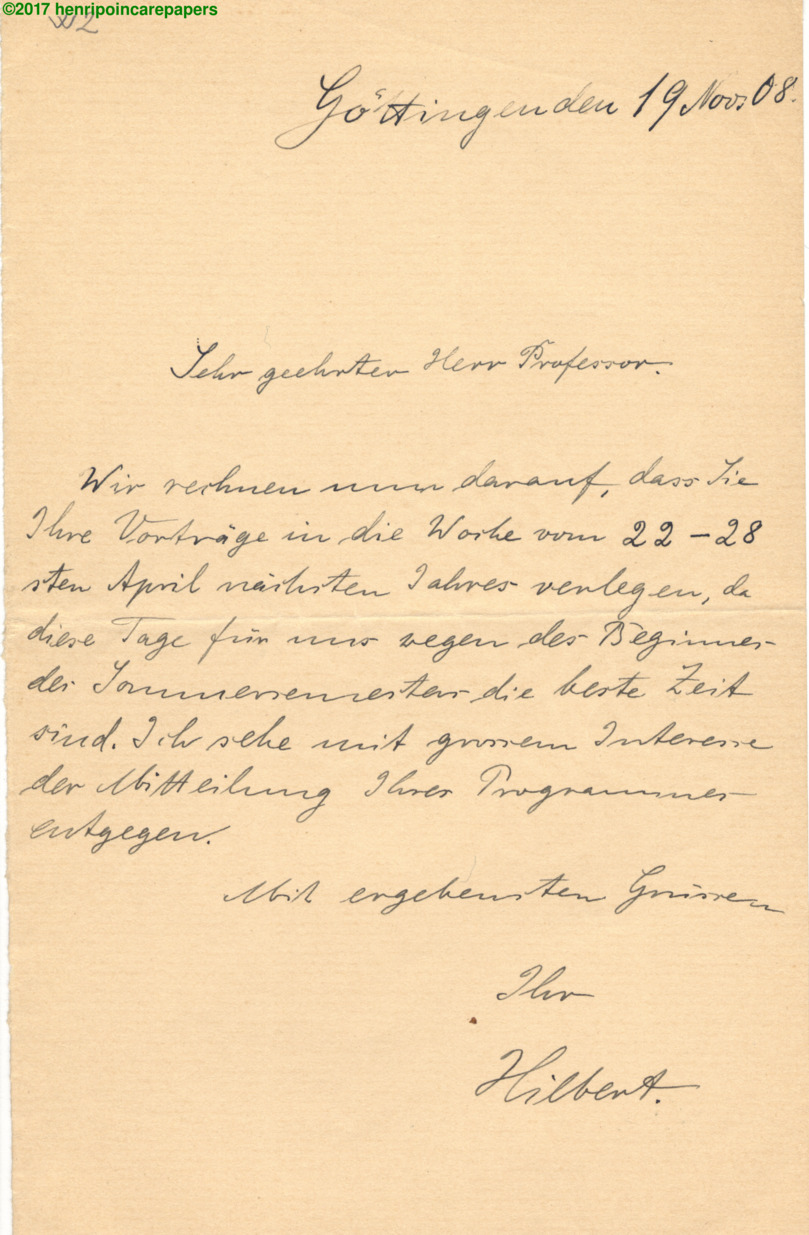 ©2017 henripoincarepapers
Göttingen den 19 Nov. 08.
Sehr geehrter Herr Professor.
Wir rechnen nun darauf, dass Sie
Ihre Vorträge in die Woche vom 22 – 28
sten April nächsten Jahres verlegen, da
diese Tage für uns wegen des Beginnes
des Sommersemesters die beste Zeit
sind. Ich sehe mit grossem Interesse
der Mitteilung Ihres Programmes
entgegen.
Mit ergebensten Grüssen
Ihr
Hilbert.